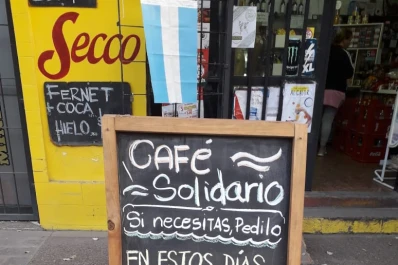 Secco
FERNET
+ COCA
HIELO...
CAFÉ
Solidario
Si necesitas, Pedilo
EN ESTOS DÍAS